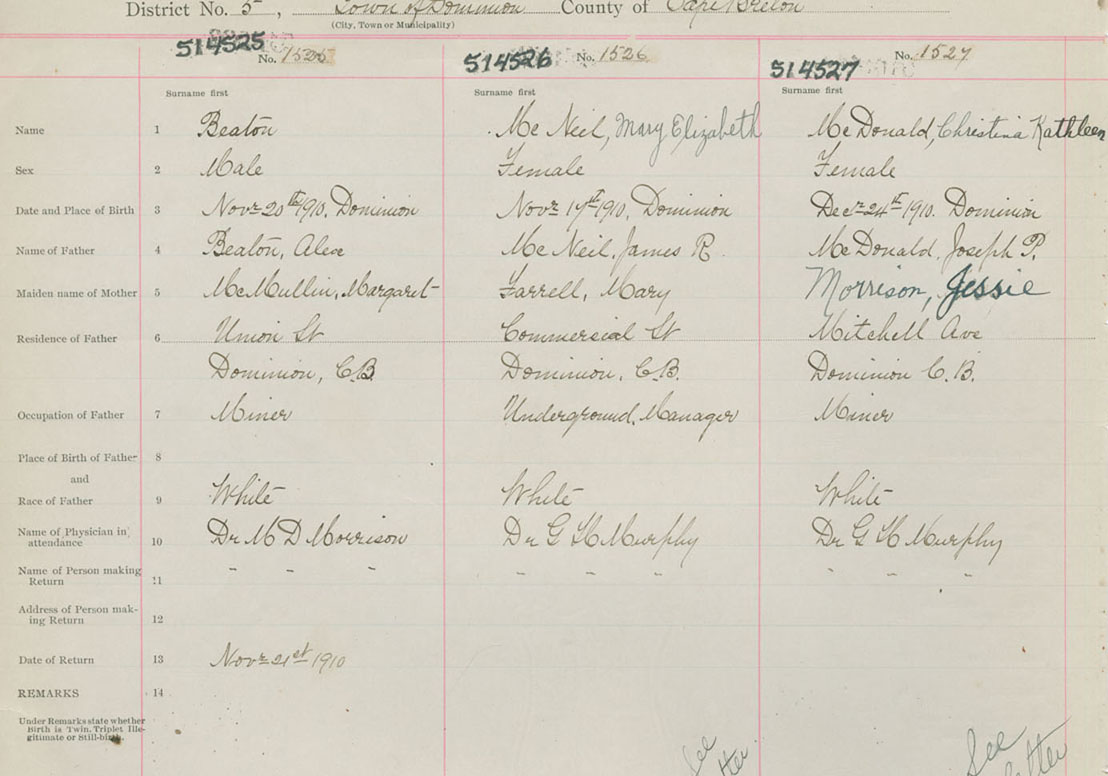 District No. 5, Town of Dominion County of Cape Breton
(City, Town or Municipality)
514525 No. 1525 514526 No. 1526 514527 No. 1527
Surname first Surname first Surname first
Name 1 Beaton Mc Neil, Mary Elizabeth Mc Donald, Christina Kathleen
Sex 2 Male Female Female
Date and Place of Birth 3 Novr 20th 1910, Dominion Novr 17th 1910, Dominion Decr 24th 1910. Dominion
Name of Father 4 Beaton, Alex Mc Neil, James R. McDonald, Joseph P.
Maiden name of Mother 5 McMullin, Margaret Farrell, Mary Morrison, Jessie
Residence of Father 6 Union St Commercial St Mitchell Ave
Dominion, C.B. Dominion, C.B. Dominion C.B.
Occupation of Father 7 Miner Underground Manager Miner
Place of Birth of Father 8
and
Race of Father 9 White White White
Name of Physician in attendance 10 Dr M D Morrison Dr G H Murphy Dr G H Murphy
Name of Person making Return 11 " " " " " " " " "
Address of Person mak-
ing Return 12
Date of Return 13 Novr 21st 1910
REMARKS 14
Under Remarks state whether
Birth is Twin, Triplet Ille-
gitimate or Still-birth.
See See
letter